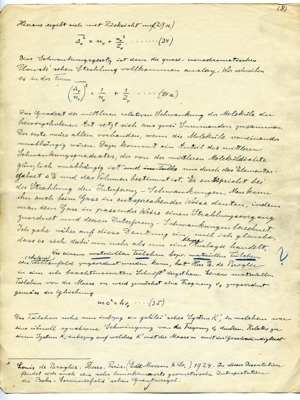 (8)
Hieraus ergibt sich mit Rücksicht auf (21a)
Δν² = nν + nν²/zν ......(34)
Das Schwankungsgesetz ist dem der quasi-monochromatischen
Planck'schen Strahlung vollkommen analog. Wir schreiben
es in der Form
(Δν/nν)² = 1/nν + 1/zν ......(34a)
Das Quadrat der mittleren relativen Schwankung der Moleküle der
hervorgehobenen Art setzt sich aus zwei Summanden zusammen.
Der erste wäre allein vorhanden, wenn die Moleküle voneinander
unabhängig wären. Dazu kommt ein Anteil des mittleren
Schwankungsquadrates, der von der mittleren Moleküldichte
gänzlich unabhängig ist und durch das Elementar-
gebiet und das Volumen bestimmt ist. Er entspricht bei
der Strahlung den Interferenz-Schwankungen. Man kann
ihn auch beim Gase in entsprechender Weise deuten, indem
man dem Gase in passender Weise einen Strahlungsvorgang
zuordnet und dessen Interferenz-Schwankungen berechnet.
Ich gehe näher auf diese Deutung ein, weil ich glaube,
dass es sich dabei um mehr als um eine blosse Analogie handelt.
Wie einem materiellen Teilchen bzw. materiellen Teilchen
ein Wellenfeld zugeordnet werden kann, hat Herr E. de Broglie
in einer sehr beachtenswerten Schrift* dargethan. Einem materiellen
Teilchen von der Masse m wird zunächst eine Frequenz ν₀ zugeordnet
gemäss der Gleichung
mc² = hν₀ ...... (35)
Das Teilchen ruhe nun in Bezug auf galilei'sches System K', in welchem wir
eine überall synchrone Schwingung von der Frequenz ν₀ denken. Relativ zu
einem System K, in Bezug auf welches K' mit der Masse m mit der Geschwindigkeit
* Louis de Broglie. Thèses. Paris. (Edit. Masson & Co.) 1924. In dieser Dissertation
findet sich auch eine sehr bemerkenswerte geometrische Interpretation
der Bohr-Sommerfeld'schen Quantenregel.